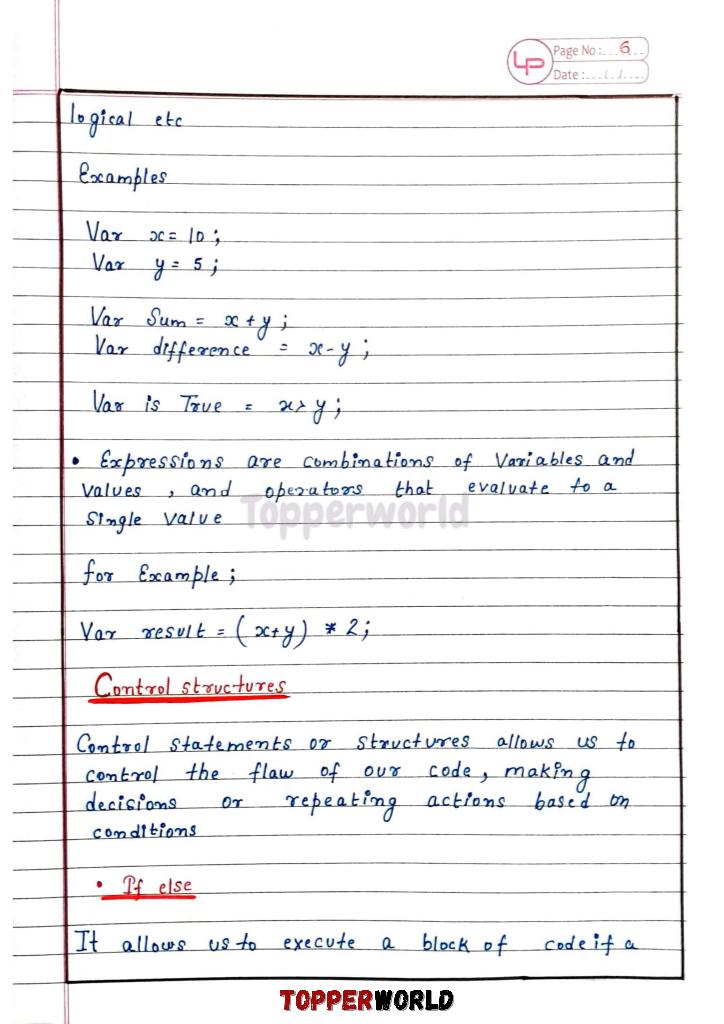 LP
Page No:...6..
Date:.../../....
logical etc
Examples
Var x = 10 ;
Var y = 5 ;
Var Sum = x + y ;
Var difference = x - y ;
Var is True = x > y ;
• Expressions are combinations of Variables and
values , and operators that evaluate to a
Single value
Topperworld
for Example ;
Var result = ( x+y ) * 2 ;
Control structures
Control statements or structures allows us to
control the flaw of our code , making
decisions or repeating actions based on
conditions
• If else
It allows us to execute a block of code if a
TOPPERWORLD